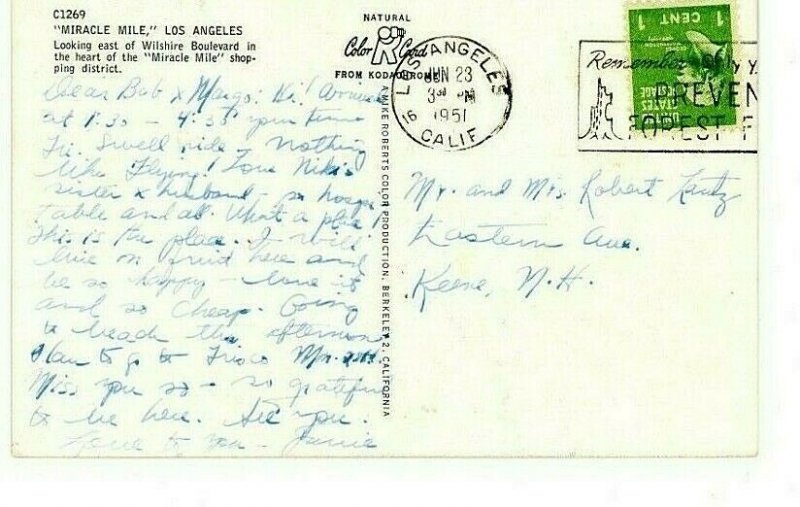 C1269
"MIRACLE MILE," LOS ANGELES
Looking east of Wilshire Boulevard in
the heart of the "Miracle Mile" shop-
ping district.
Dear Bob & Margo: Hi! Arrived
at 1:30 - 4:30 your time
Fri. Swell ride - Nothing
like flying! Love Niki's
sister & husband - so hospi
table and all. What a place!
This is the place. I will
live on fruit here and
be so happy - love it
and so cheap. Going
to beach this afternoon
Plan to go to Frisco
Miss you so - so grateful
to be here. See you.
Love to you - Janie
NATURAL
Color R Card
FROM KODACHROME
A MIKE ROBERTS COLOR PRODUCTION, BERKELEY 2, CALIFORNIA
LOS ANGELES
16
CALIF
JUN 23
3 PM
1951
1 CENT 1
UNITED
STATES
POSTAGE
Remember Only Y
PREVEN
FOREST F
Mr. and Mrs. Robert Lantz
Eastern Ave.
Keene, N.H.